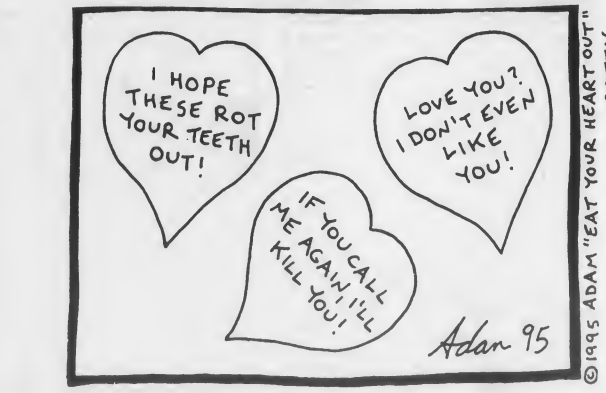 I HOPE
THESE ROT
YOUR TEETH
OUT!
LOVE YOU?
I DON'T EVEN
LIKE
YOU!
IF YOU CALL
ME AGAIN I'LL
KILL YOU!
Adam 95
©1995 ADAM "EAT YOUR HEART OUT"